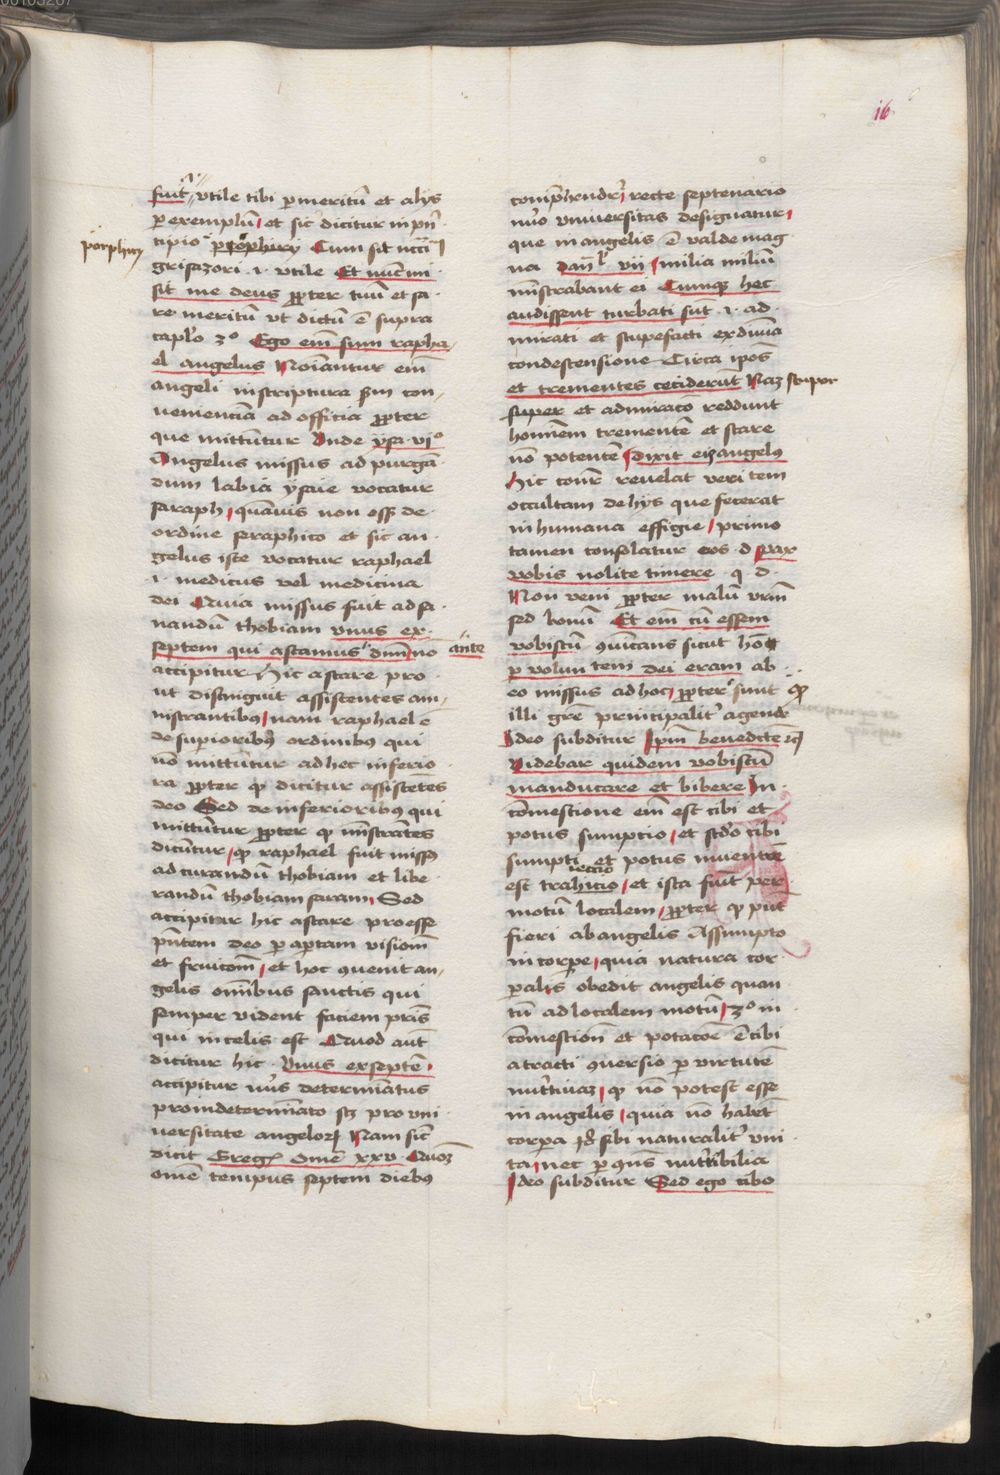 16
fuit vtile tibi p meritū et alys
p exemplū et sic dicitur in pn̄
cipio prophiry Cum sit ncc̄
porphiry
grisazori .i. vtile Et nunc mi
sit me deus ꝓpter tuū et sa
re meritū vt dictū ē supra
caplo 3º Ego em̄ sum rapha
el angelus Noīantur em̄
angeli in scriptura sm̄ con
uenienciā ad officia ꝓpter
que mittūtur Vnde ysa . vjº
Angelus missus ad purgā
dum labia ysaie vocatur
saraph , quāuis non esset de
ordine seraphico et sic an
gelus iste vocatur raphael
.i. medicus vel medicina
dei Quia missus fuit ad sa
nandū thobiam vnus ex
septem qui astamus dnm̄ nō
ante
accipitur hic astare pro
ut distinguit assistentes am
nistrantibus nam raphael ē
de suꝑioribꝰ ordinibꝰ qui
nō mittūtur ad hec inferio
ra ꝓpter qd̄ dicitur assistētes
deo Sed de inferioribꝰ qui
mittūtur ꝓpter qd̄ mīstrātes
dicūtur , qd̄ raphael fuit missꝰ
ad curandū thobiam et libe
randū thobiam saram , Sed
accipitur hic astare pro esse
pn̄tem deo p aptam visionē
et fruiconē , et hoc ꝯuenit an
gelis omībus sanctis qui
semper vident faciem pris̄
qui in celis est Quod aut̄
dicitur hic . Vnus ex septē
accipitur nūs determīatus
pro indetermīato scz pro vni
uersitate angeloꝝ Nam sic̄
dicit Greg omē xxv Quoz
omē tempus septem diebꝰ
compͬhendͬ , recte septenario
nūo vniuersitas designatur ,
que in angelis ē valde mag
na dan̄l vii , milia miliū
mīstrabant ei Cumqꝫ hec
audissent turbati sūt .i. ad
mirati et stupefacti ex diuīa
condescensione Circa ipos̄
et trementes ceciderūt Naz stupor
super et admiracō reddunt
hominem trementē et stare
nō potentē , dixit eis angelꝰ
Hic conr̄ reuelat veri tem
occultam de hys que fecerat
in humana effigie , primo
tamen consolatur eos . d . pax
vobis nolite timere . q d .
Non veni ꝓpter malū vrm̄
sed bonū Et em̄ cū essem
vobiscū qūicans sicut hō
p volun tem dei eram ab
eo missus ad hoc , ꝓpter sunt qd̄
illi grē principalitͬ agende
Ideo subditur Ipm̄ benedcīte ꝛc
Videbar quidem vobiscū
manducare et bibere In
cōmestione em̄ est cibi et
potus sumptio , et scdō cibi
sumpti et potus in uentrē
iectio
est trahicio , et ista fiūt per
motū localem , ꝓpter qd̄ pn̄t
fieri ab angelis Assumpto
in corpe , quia natura cor
palis̄ obedit angelis quan
tū ad localem motū , 3º in
cōmestionē et potacōē ē cibi
atracti ꝯuersio p virtutē
nutritiuaz , qd̄ nō potest esse
in angelis , quia nō habēt
corpa sibi naturalitͬ vni
ta nec p ꝯn̄s nutribilia
Ideo subditur Sed ego cibo